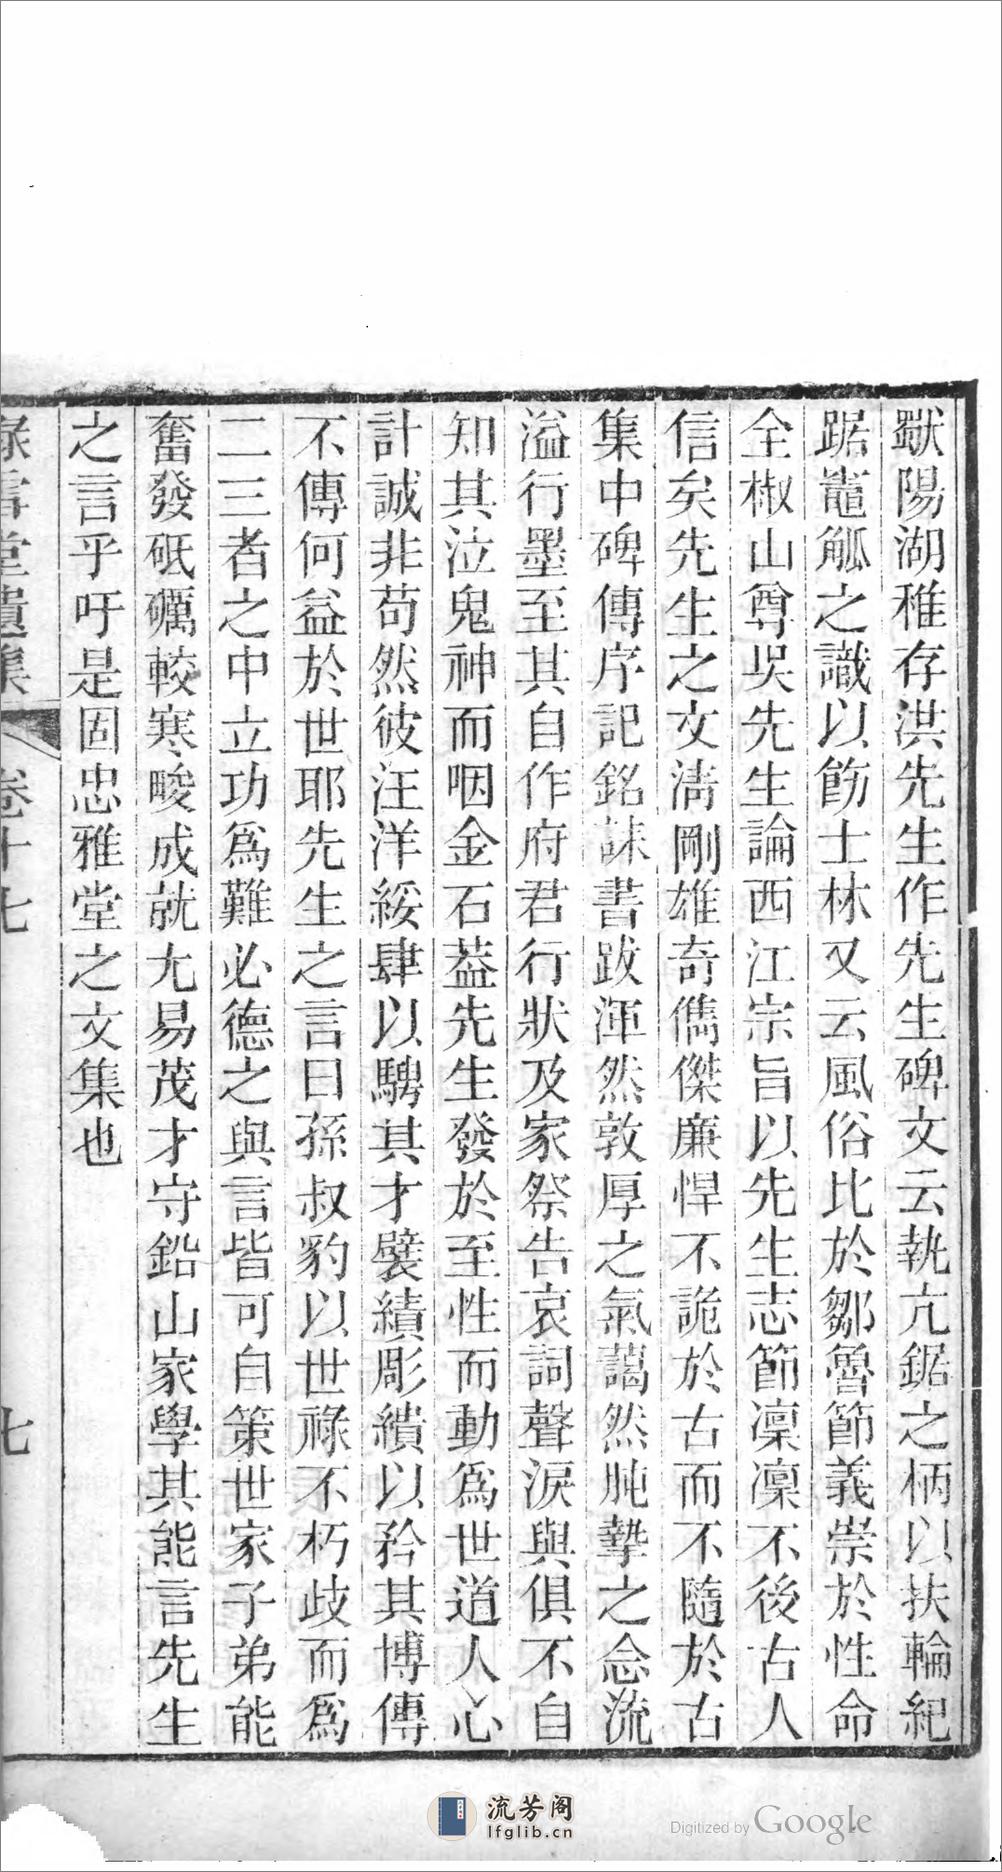 歟陽湖稚存洪先生作先生碑文云執亢鋸之柄以扶輪紀
踞竈觚之識以飭士林又云風俗比於鄒魯節義崇於性命
全椒山尊吳先生論西江宗旨以先生志節凜凜不後古人
信矣先生之文淸剛雄奇儁傑廉悍不詭於古而不隨於古
集中碑傳序記銘誄書跋渾然敦厚之氣藹然肫摯之念流
溢行墨至其自作府君行狀及家祭告哀詞聲淚與俱不自
知其泣鬼神而咽金石葢先生發於至性而動爲世道人心
計誠非苟然彼汪洋綏肆以騁其才襞績彫繢以矜其博傳
不傳何益於世耶先生之言曰孫叔豹以世祿不朽歧而爲
二三者之中立功爲難必德之與言皆可自策世家子弟能
奮發砥礪較寒畯成就尢易茂才守鉛山家學其能言先生
之言乎吁是固忠雅堂之文集也
堂遺集
卷十七
七
流芳阁
lfglib.cn
Digitized by Google